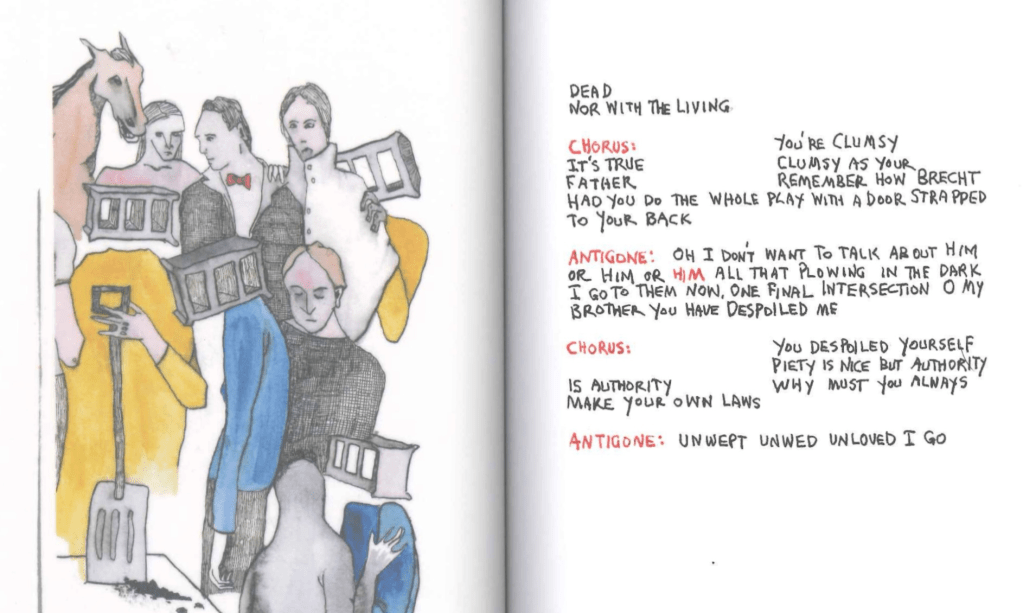 DEAD
NOR WITH THE LIVING
CHORUS: YOU'RE CLUMSY
IT'S TRUE CLUMSY AS YOUR
FATHER REMEMBER HOW BRECHT
HAD YOU DO THE WHOLE PLAY WITH A DOOR STRAPPED
TO YOUR BACK
ANTIGONE: OH I DON'T WANT TO TALK ABOUT HIM
OR HIM OR HIM ALL THAT PLOWING IN THE DARK
I GO TO THEM NOW, ONE FINAL INTERSECTION O MY
BROTHER YOU HAVE DESPOILED ME
CHORUS: YOU DESPOILED YOURSELF
PIETY IS NICE BUT AUTHORITY
IS AUTHORITY WHY MUST YOU ALWAYS
MAKE YOUR OWN LAWS
ANTIGONE: UNWEPT UNWED UNLOVED I GO